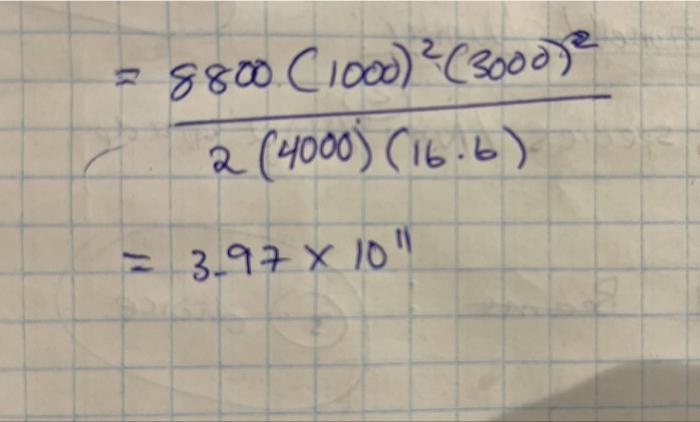 = 8800 (1000)² (3000)²
2 (4000) (16.6)
= 3.97 × 10¹¹